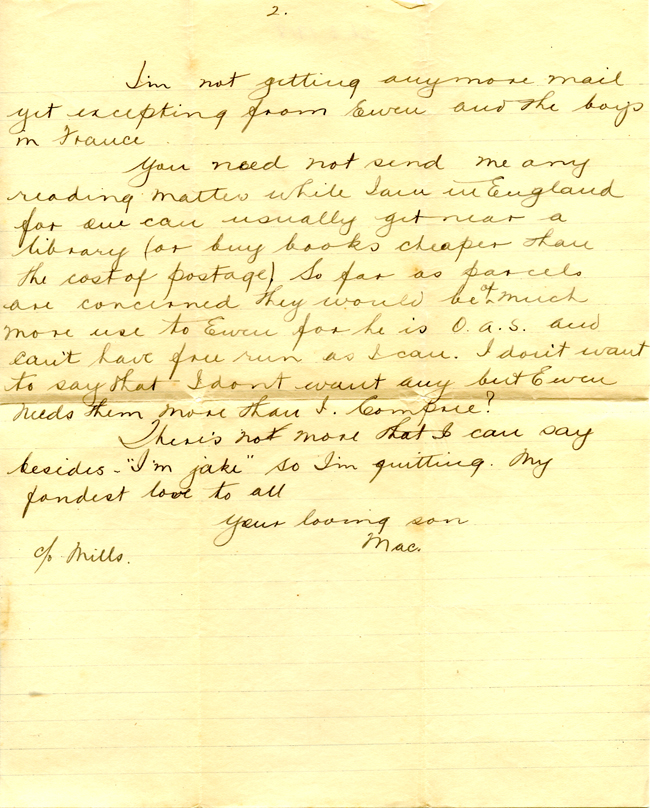 2.
I'm not getting anymore mail
yet excepting from Ewen and the boys
in France
You need not send me any
reading matter while I am in England
for one can usually get near a
library (or buy books cheaper than
the cost of postage) So far as parcels
are concerned they would be of much
more use to Ewen for he is O.A.S. and
can't have free run as I can. I don't want
to say that I don't want any but Ewen
needs them more than I. Compree?
There's not more that I can say
besides - "I'm jake" so I'm quitting. My
fondest love to all
Your loving son
Mac.
c/o Mills.